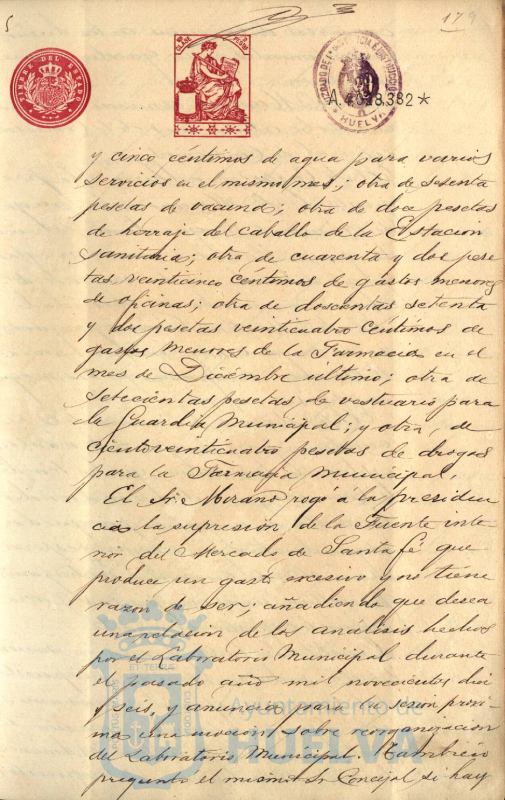 179
TIMBRE DEL ESTADO
CLASE
A.4028.382*
HUELVA
y cinco céntimos de agua para varios
servicios en el mismo mes; otra de sesenta
pesetas de vacuna; otra de doce pesetas
de herraje del caballo de la Estacion
sanitaria; otra de cuarenta y dos pese
tas veinticinco céntimos de gastos menores
de oficinas; otra de doscientas setenta
y dos pesetas veinticuatro céntimos de
gastos menores de la Farmacia en el
mes de Diciembre último; otra de
setecientas pesetas de vestuario para
la Guardia Municipal; y otra, de
cientoveinticuatro pesetas de drogas
para la Farmacia Municipal.
El Sr. Morano rogo a la presiden
cia la supresion de la Fuente inte
rior del Mercado de Santa Fé que
produce un gasto excesivo y no tiene
razon de ser; añadiendo que desea
una relacion de los análisis hechos
por el Laboratorio Municipal durante
el pasado año mil novecientos diez
y seis, y anuncia para la sesion proxi
ma una mocion sobre reorganizacion
del Laboratorio Municipal. Tambien
pregunto el mismo Sr. Concejal si hay
Ayuntamiento de
HUELVA